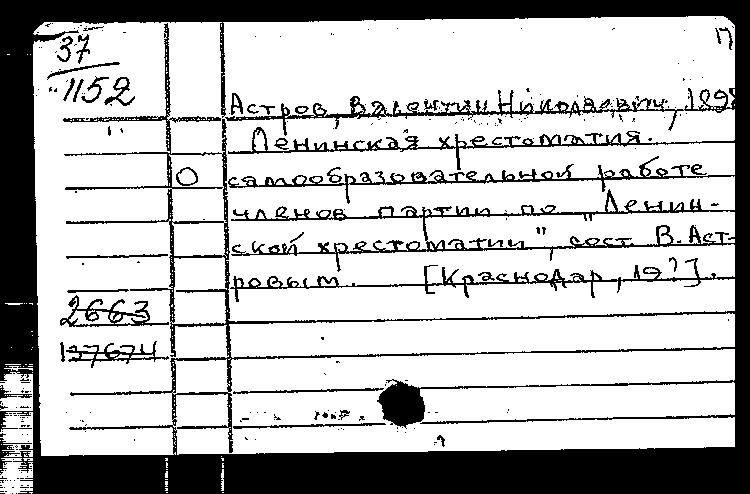 37
1152
Астров, Валентин Николаевич, 1898
Ленинская хрестоматия.
О самообразовательной работе
членов партии по "Ленин-
ской хрестоматии", сост. В. Аст-
ровым. [Краснодар, 19?].
2663
137674